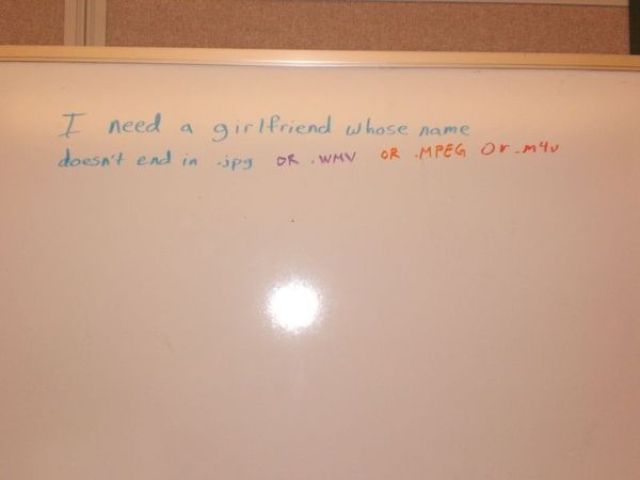 I need a girlfriend whose name
doesn't end in .jpg OR .WMV OR .MPEG Or .m4v